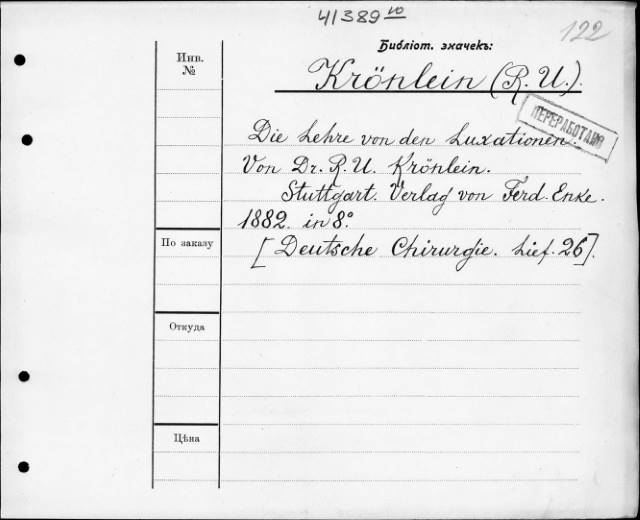 41389 10
122
Библіот. значекъ:
Инв.
№
Krönlein (R. U.).
ПЕРЕРАБОТАНО
Die Lehre von den Luxationen.
Von Dr. R. U. Krönlein.
Stuttgart. Verlag von Ferd. Enke.
1882. in 8º.
По заказу
[Deutsche Chirurgie. Lief. 26].
Откуда
Цѣна